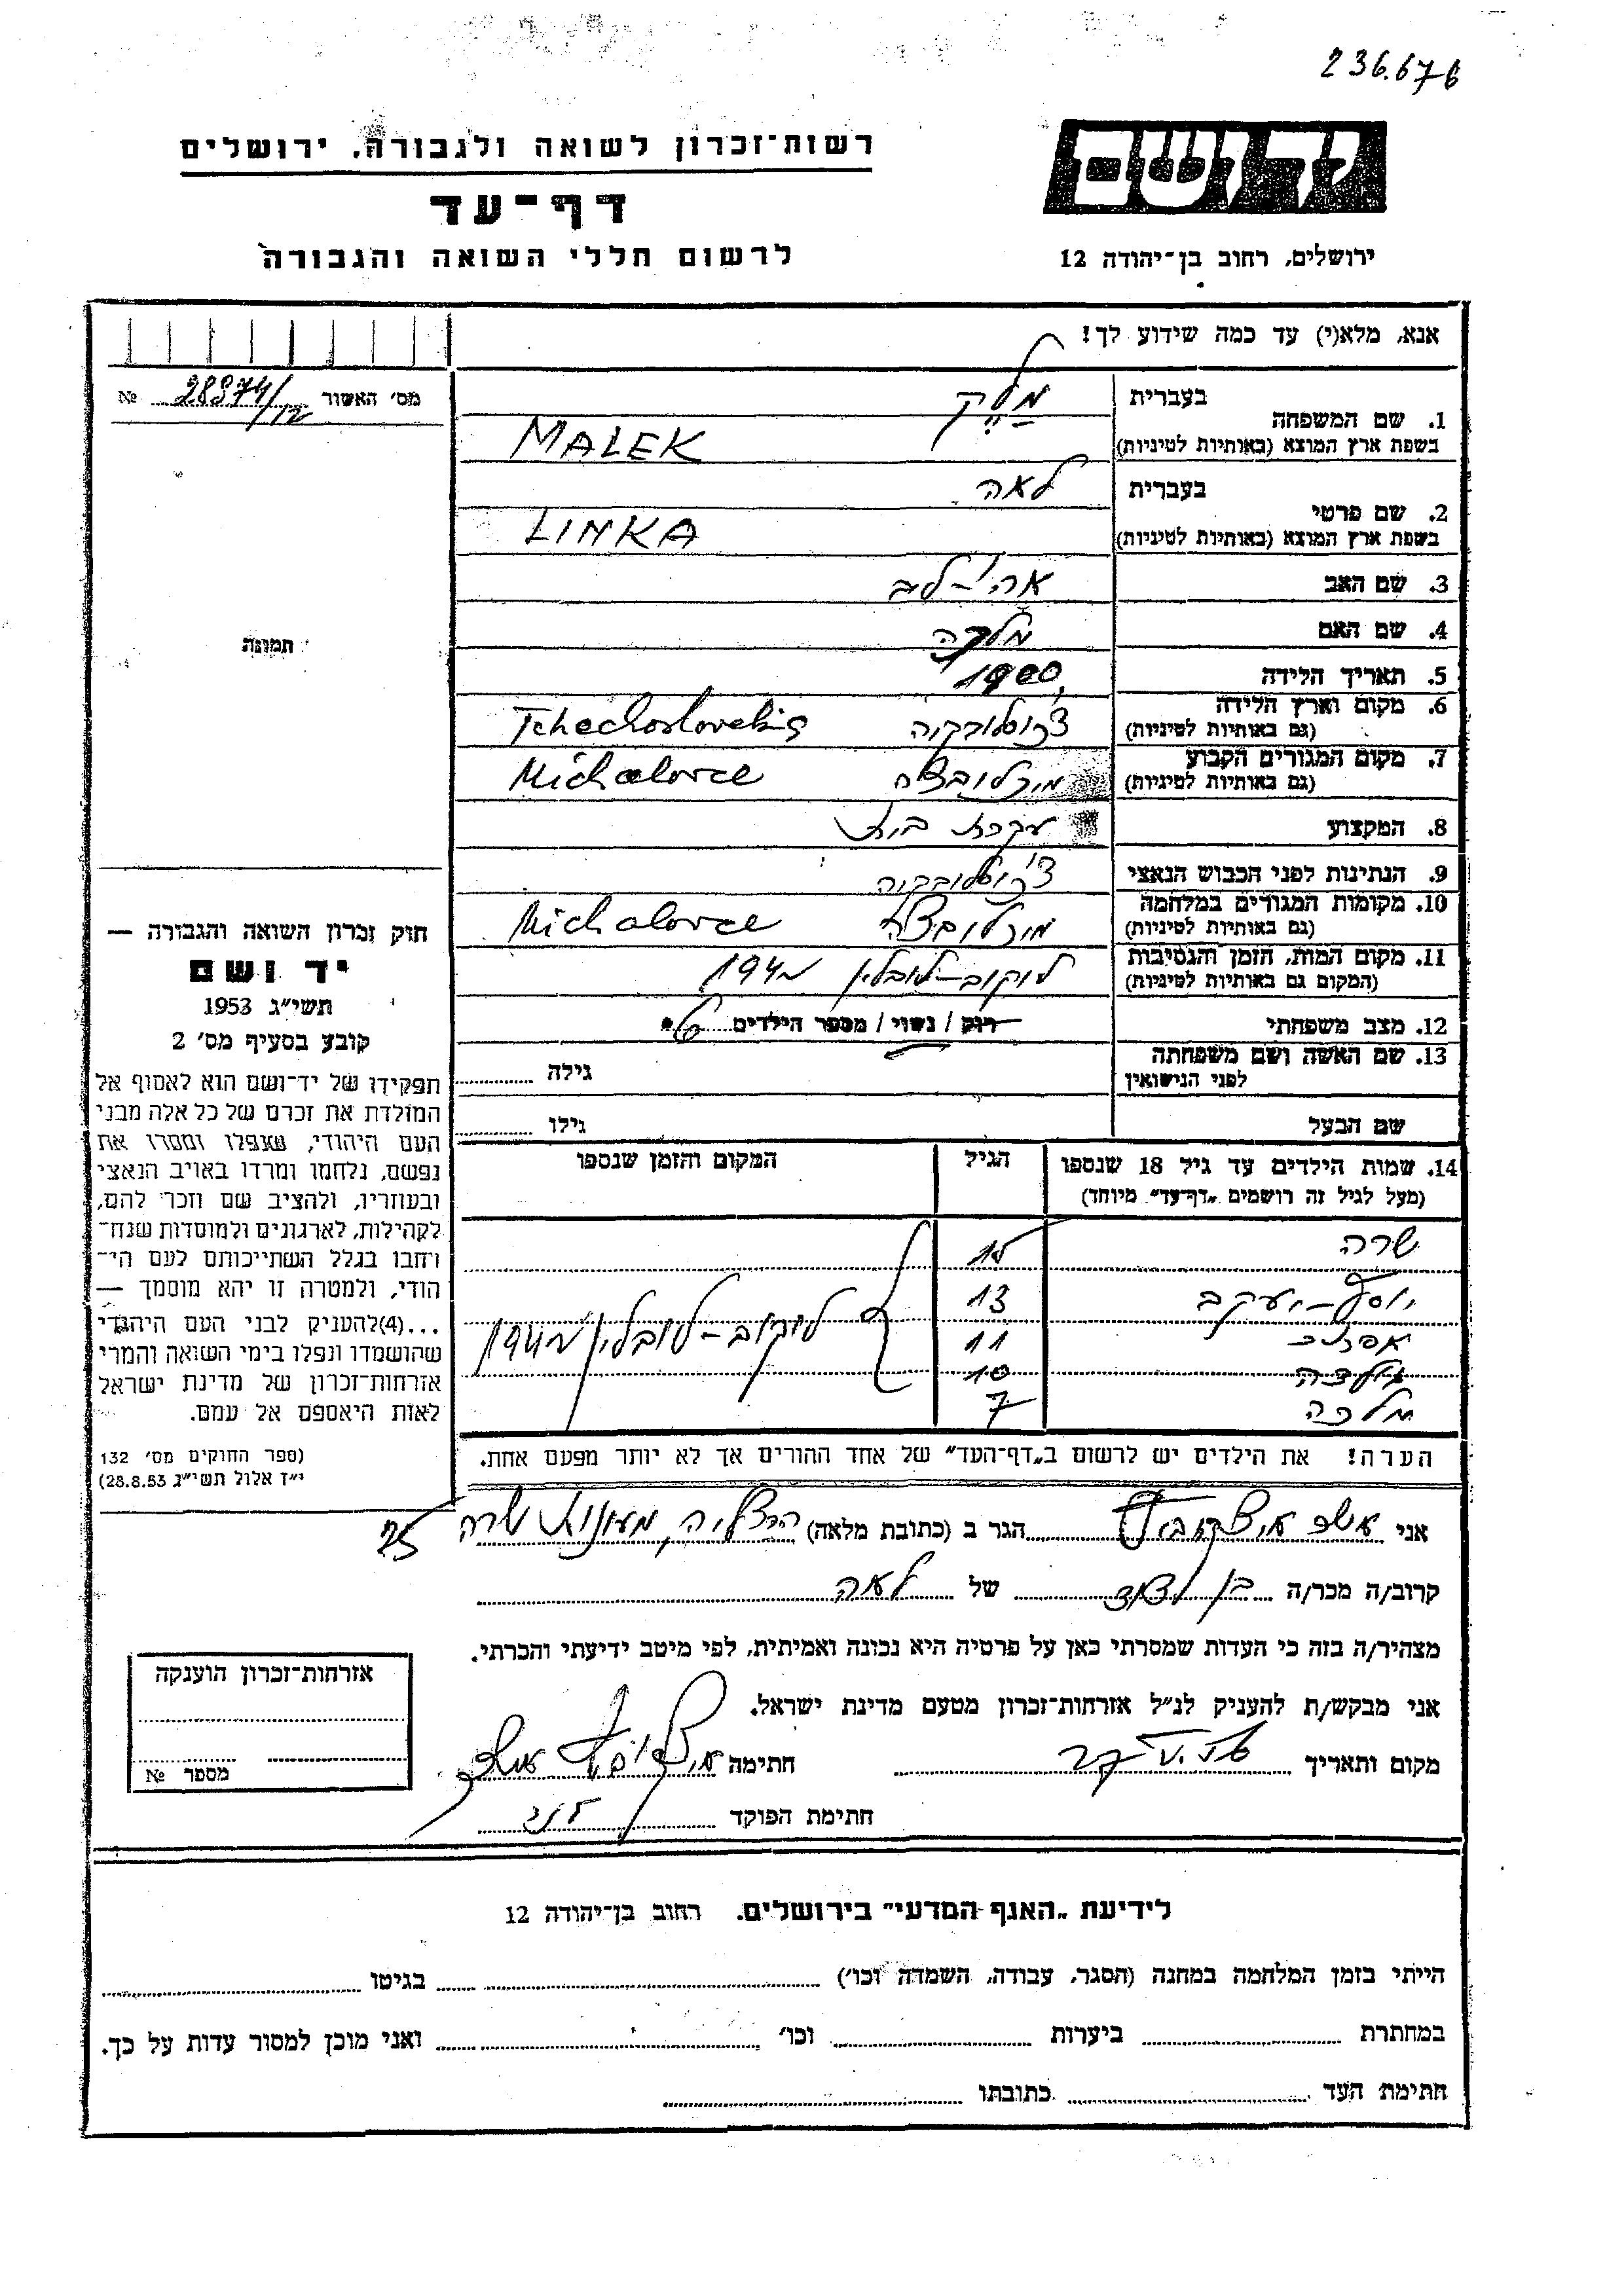 236.676
יד ושם
רשות־זכרון לשואה ולגבורה, ירושלים
דף־עד
לרשום חללי השואה והגבורה
ירושלים, רחוב בן־יהודה 12
אנא, מלא(י) עד כמה שידוע לך!
מס׳ האשור 28974/12 №
1. שם המשפחה
בעברית מַלֵק
בשפת ארץ המוצא (באותיות לטיניות) MALEK
2. שם פרטי
בעברית לאה
בשפת ארץ המוצא (באותיות לטיניות) LINKA
3. שם האב ארי-לב
4. שם האם מלכה
5. תאריך הלידה 1900
6. מקום וארץ הלידה (גם באותיות לטיניות) צ'כוסלובקיה Tchechoslovekis
7. מקום המגורים הקבוע (גם באותיות לטיניות) מיכלובצה Michalovce
8. המקצוע עקרת בית
9. הנתינות לפני הכבוש הנאצי צ'כוסלובקיה
10. מקומות המגורים במלחמה (גם באותיות לטיניות) מיכלובצה Michalovce
11. מקום המות, הזמן והנסיבות (המקום גם באותיות לטיניות) לוקוב-לובלין 1942
12. מצב משפחתי רווק / נשוי / מספר הילדים
13. שם האשה ושם משפחתה לפני הנישואין גילה
שם הבעל גילו
14. שמות הילדים עד גיל 18 שנספו הגיל המקום והזמן שנספו
(מעל לגיל זה רושמים „דף־עד״ מיוחד)
שרה 15
יוסף-יעקב 13
11 לוקוב-לובלין 1942
10
מלכה 7
הערה! את הילדים יש לרשום ב„דף־העד״ של אחד ההורים אך לא יותר מפעם אחת.
תמונה
חוק זכרון השואה והגבורה —
יד ושם
תשי״ג 1953
קובע בסעיף מס׳ 2
תפקידו של יד־ושם הוא לאסוף אל
המולדת את זכרם של כל אלה מבני
העם היהודי, שנפלו ומסרו את
נפשם, נלחמו ומרדו באויב הנאצי
ובעוזריו, ולהציב שם וזכר להם,
לקהילות, לארגונים ולמוסדות שנח־
רחבו בגלל השתייכותם לעם הי־
הודי, ולמטרה זו יהא מוסמך —
...(4)להעניק לבני העם היהודי
שהושמדו ונפלו בימי השואה והמרי
אזרחות־זכרון של מדינת ישראל
לאות היאספם אל עמם.
(ספר החוקים מס׳ 132
י״ז אלול תשי״ג 28.8.53)
אני אשר איצקוביץ הגר ב (כתובת מלאה) הרצליה, מעונות שרה 25
קרוב/ה מכר/ה בן דוד של לאה
מצהיר/ה בזה כי העדות שמסרתי כאן על פרטיה היא נכונה ואמיתית, לפי מיטב ידיעתי והכרתי.
אני מבקש/ת להעניק לנ״ל אזרחות־זכרון מטעם מדינת ישראל.
מקום ותאריך חתימה איצקוביץ אשר
חתימת הפוקד
אזרחות־זכרון הוענקה
מספר №
לידיעת „האגף המדעי״ בירושלים, רחוב בן־יהודה 12
הייתי בזמן המלחמה במחנה (הסגר, עבודה, השמדה וכו׳) בגיטו
במחתרת ביערות וכו׳ ואני מוכן למסור עדות על כך.
חתימת העד כתובתו